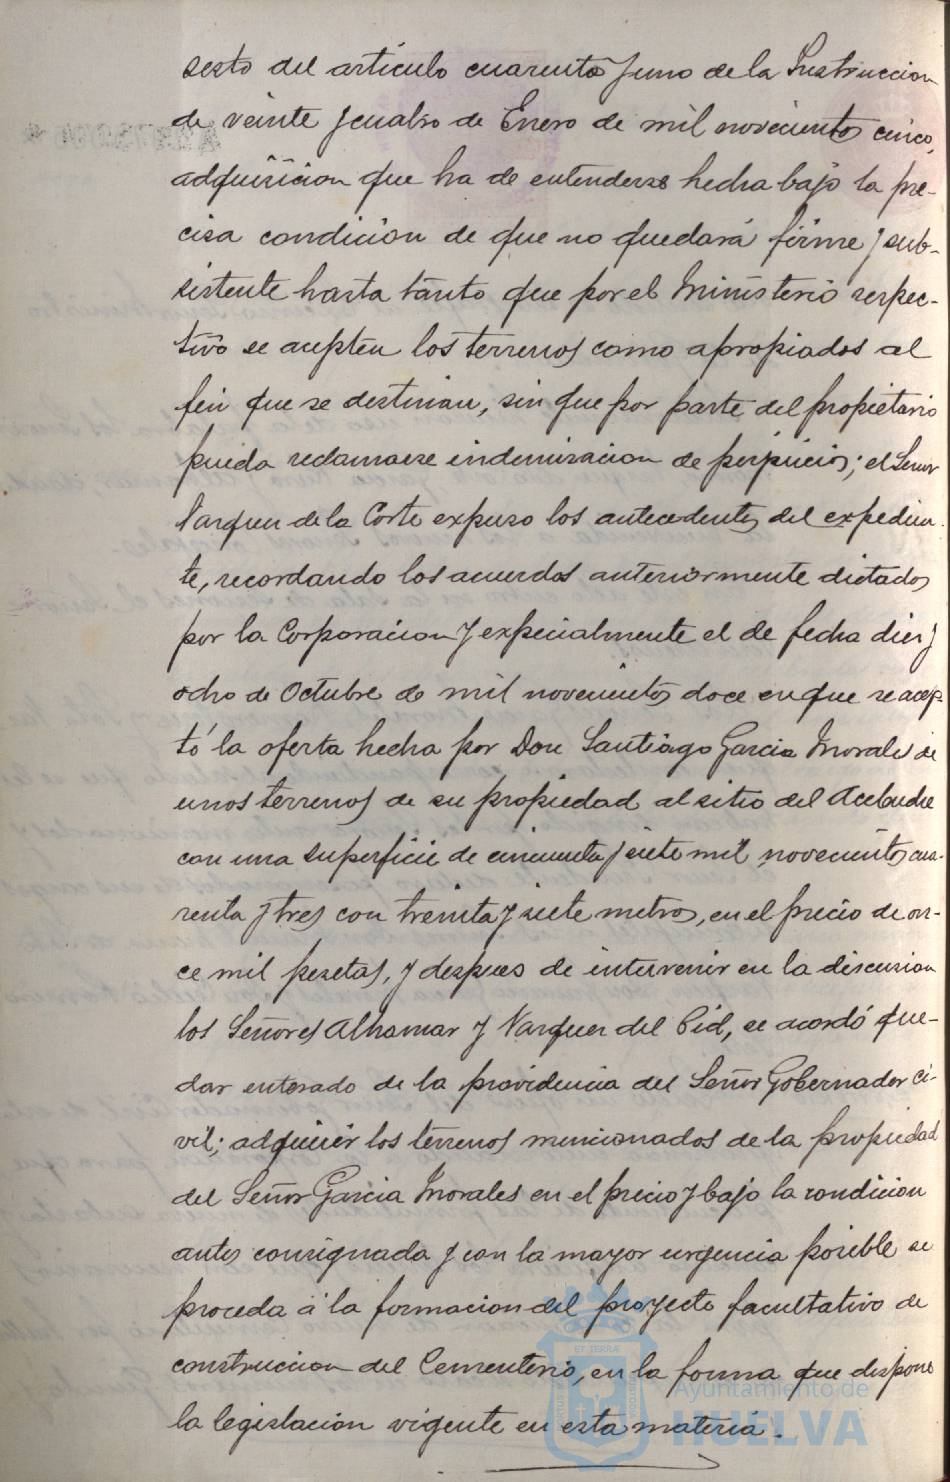 sesto del artículo cuarenta y uno de la Instruccion
de veinte y cuatro de Enero de mil novecientos cinco,
adquisicion que ha de entenderse hecha bajo la pre-
cisa condición de que no quedará firme y sub-
sistente hasta tanto que por el Ministerio respec-
tivo se acepten los terrenos como apropiados al
fin que se destinan, sin que por parte del propietario
pueda reclamarse indemnizacion de perjuicios; el Señor
Vazquez de la Corte expuso los antecedentes del expedien-
te, recordando los acuerdos anteriormente dictados
por la Corporacion y expecialmente el de fecha diez y
ocho de Octubre de mil novecientos doce en que se acep-
tó la oferta hecha por Don Santiago Garcia Morales de
unos terrenos de su propiedad al sitio del Acebuche
con una superficie de cincuenta y siete mil novecientos cua-
renta y tres con treinta y siete metros, en el precio de on-
ce mil pesetas, y despues de intervenir en la discusion
los Señores Alhamar y Vazquez del Cid, se acordó que-
dar enterado de la providencia del Señor Gobernador ci-
vil; adquirir los terrenos mencionados de la propiedad
del Señor Garcia Morales en el precio y bajo la condicion
antes consignada y con la mayor urgencia posible se
proceda á la formacion del proyecto facultativo de
construccion del Cementerio, en la forma que dispone
la legislación vigente en esta materia.
ET TERRÆ
Ayuntamiento de
HUELVA